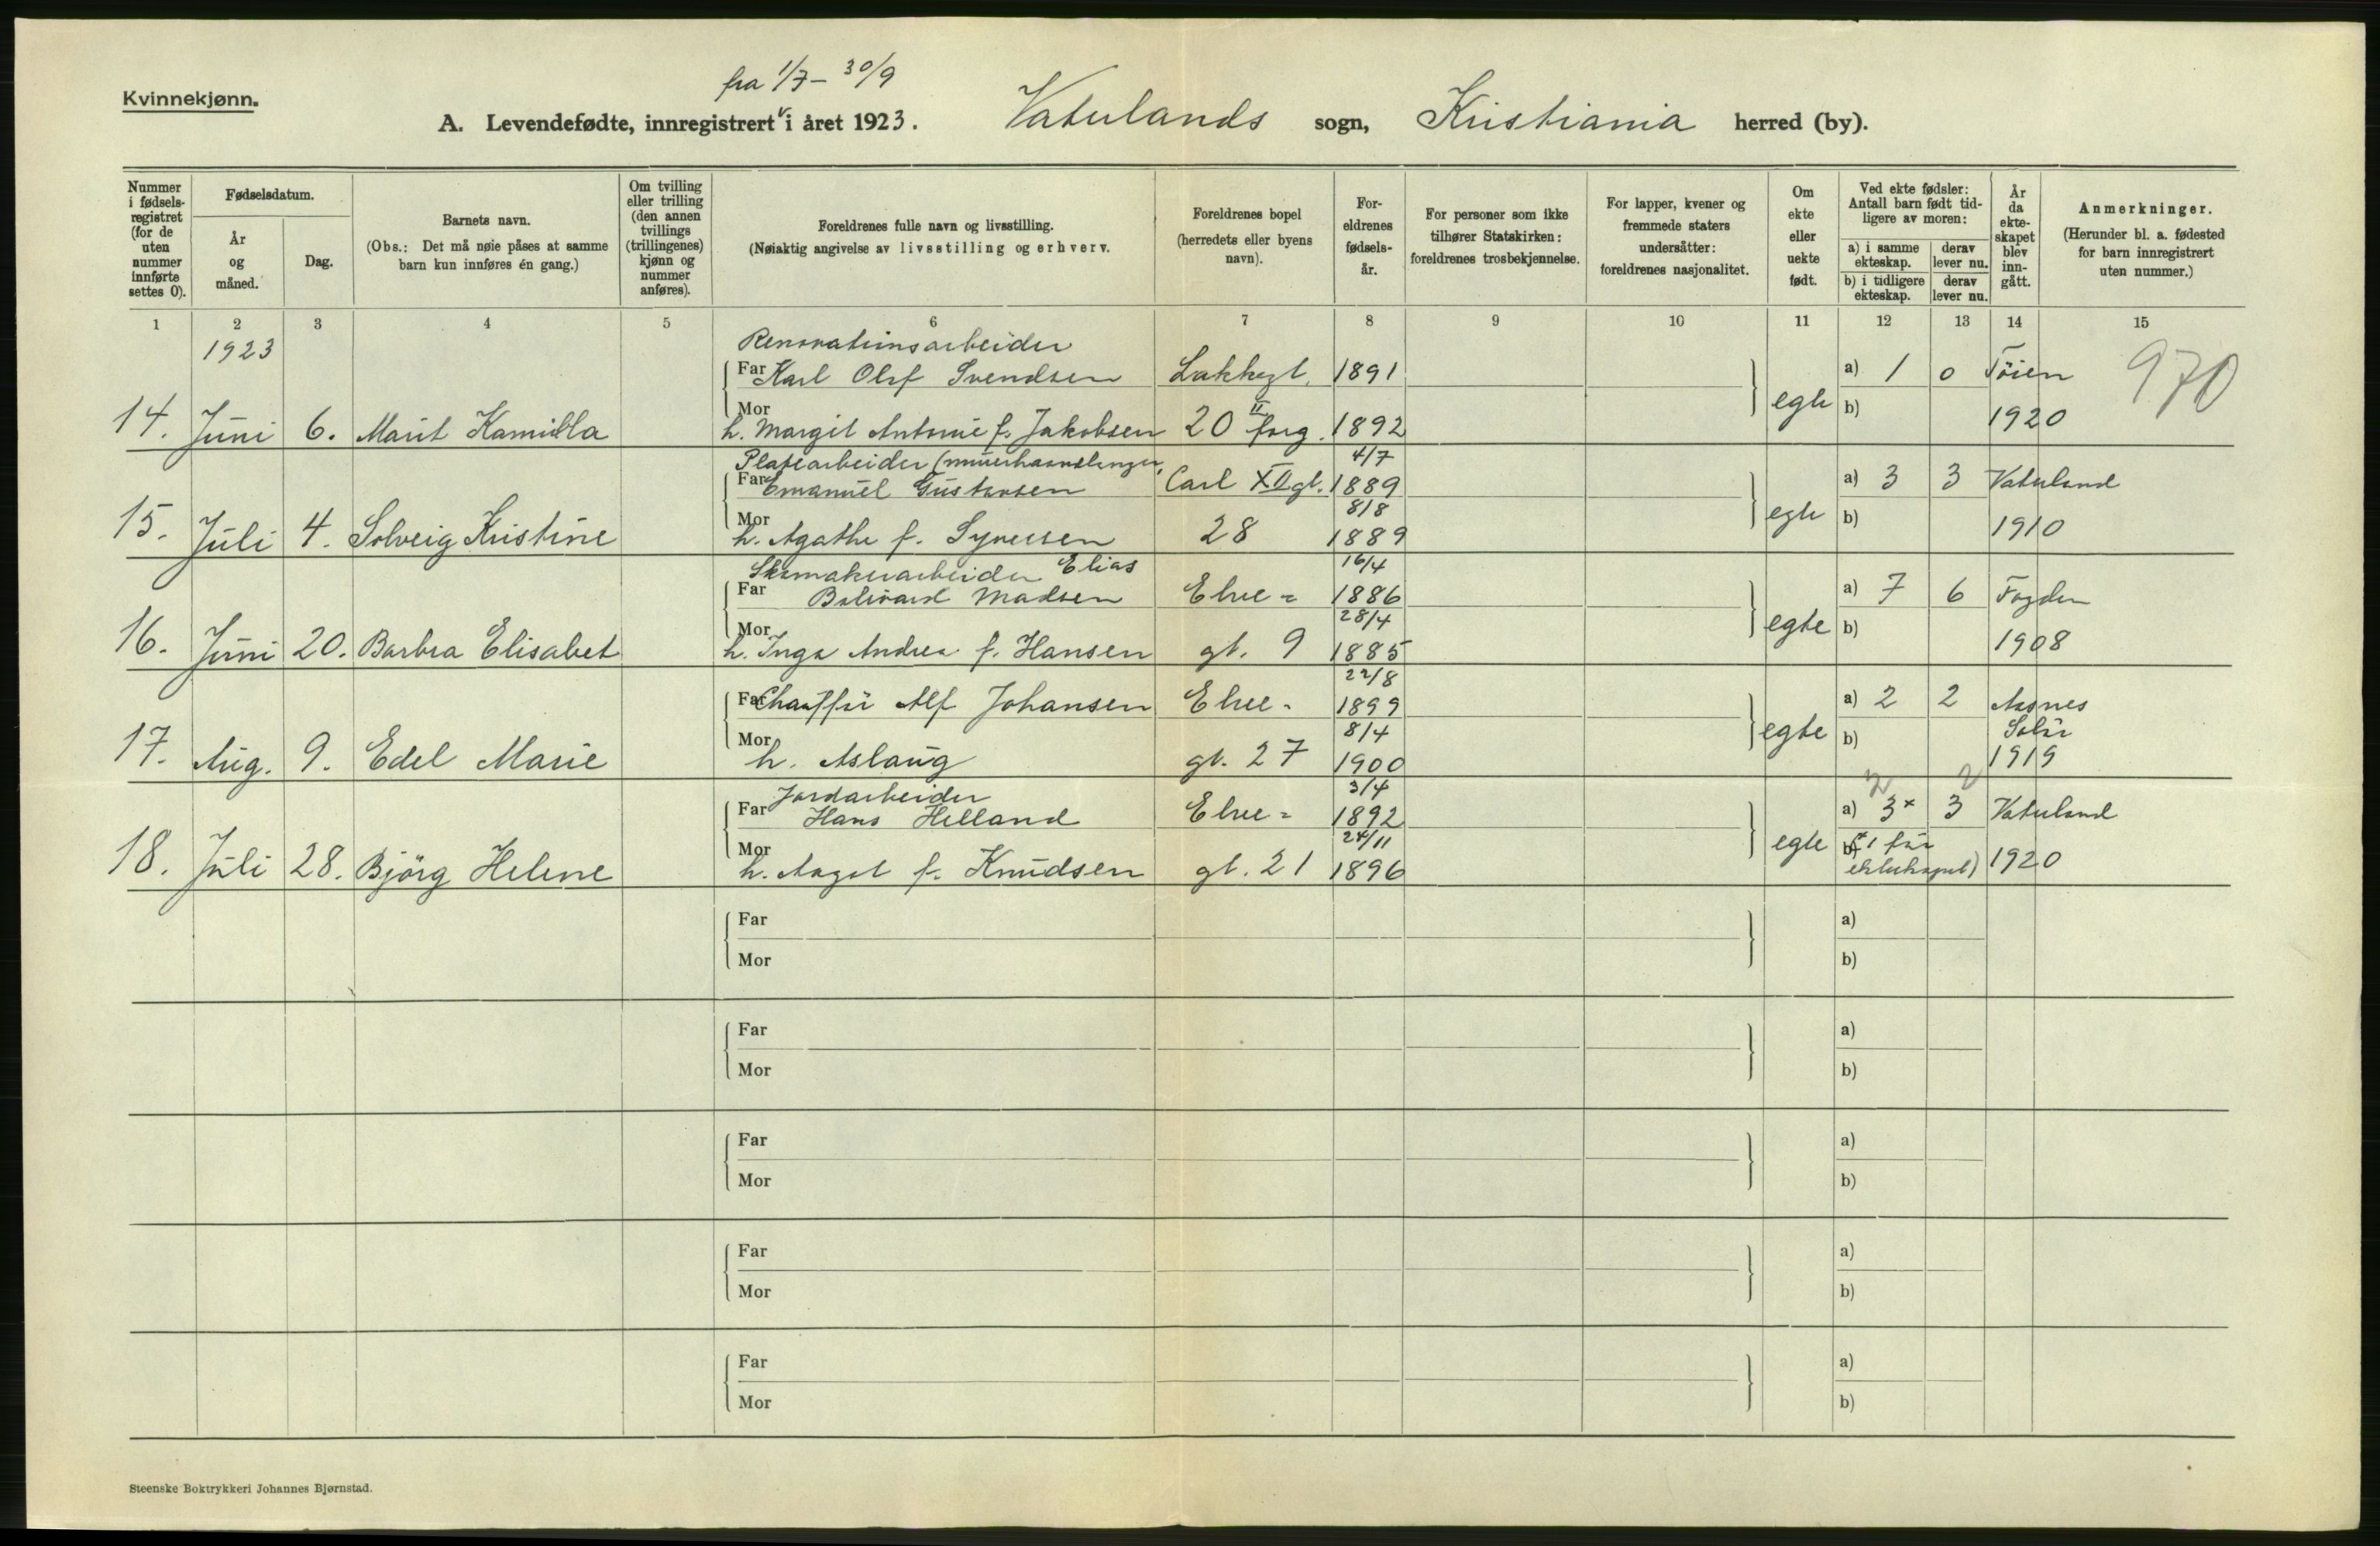 fra 1/7 – 30/9
Kvinnekjønn.
A. Levendefødte, innregistrert i året 1923. Vaterlands sogn, Kristiania herred (by).
Nummer i fødselsregistret (for de uten nummer innførte settes 0).
Fødselsdatum.
År og måned.
Dag.
Barnets navn.
(Obs.: Det må nøie påses at samme barn kun innføres én gang.)
Om tvilling eller trilling (den annen tvillings (trillingenes) kjønn og nummer anføres).
Foreldrenes fulle navn og livsstilling.
(Nøiaktig angivelse av livsstilling og erhverv.
Foreldrenes bopel (herredets eller byens navn).
Foreldrenes fødselsår.
For personer som ikke tilhører Statskirken: foreldrenes trosbekjennelse.
For lapper, kvener og fremmede staters undersåtter: foreldrenes nasjonalitet.
Om ekte eller uekte født.
Ved ekte fødsler: Antall barn født tidligere av moren:
a) i samme ekteskap. derav lever nu.
b) i tidligere ekteskap. derav lever nu.
År da ekteskapet blev inngått.
Anmerkninger.
(Herunder bl. a. fødested for barn innregistrert uten nummer.)
1 2 3 4 5 6 7 8 9 10 11 12 13 14 15
1923
Renovationsarbeider
Far Karl Olaf Svendsen Lakkegt. 1891 a) 1 0 Töien 970
14. Juni 6. Marit Kamilla Mor h. Margit Antonie f. Jakobsen 20 II forg. 1892 egte b) 1920
Platearbeider (murerhaandlanger 4/7
Far Emanuel Gustavsen Carl XII gt. 1889 a) 3 3 Vaterland
8/8
15. Juli 4. Solveig Kristine Mor h. Agathe f. Syversen 28 1889 egte b) 1910
Skomakerarbeider Elias 16/4
Far Bolivard Madsen Elve= 1886 a) 7 6
28/4
16. Juni 20. Barbra Elisabet Mor h. Inga Andrea f. Hansen gt. 9 1885 egte b) 1908
22/8
Far Chauffür Alf Johansen Elve- 1899 a) 2 2 Aasnes
8/4 Solör
17. Aug. 9. Edel Marie Mor h. Aslaug gt. 27 1900 egte b) 1919
Jordarbeider 3/4 2 2
Far Hans Helland Elve= 1892 a) 3× 3 Vaterland
24/11
18. Juli 28. Björg Helene Mor h. Aagot f. Knudsen gt. 21 1896 egte b) (× 1 før ekteskapet) 1920
Far a)
Mor b)
Far a)
Mor b)
Far a)
Mor b)
Far a)
Mor b)
Far a)
Mor b)
Steenske Boktrykkeri Johannes Bjørnstad.